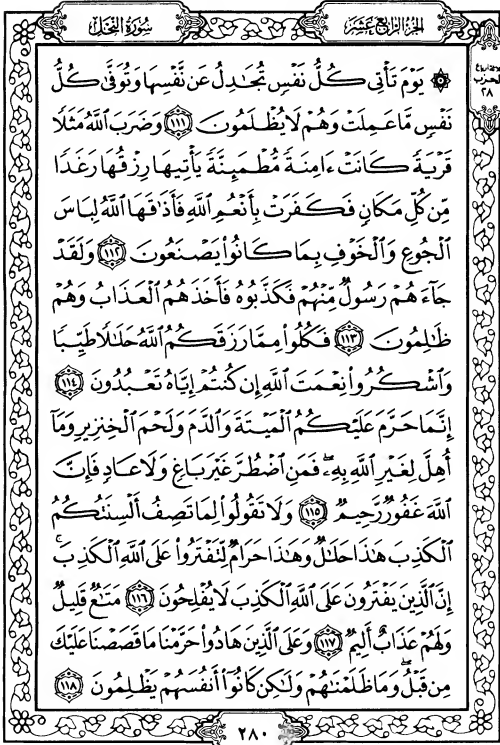 سُورَةُ النَّحْلِ
الجُزْءُ الرَّابِعَ عَشَرَ
الحزب
٢٨
۞ يَوْمَ تَأْتِى كُلُّ نَفْسٍ تُجَٰدِلُ عَن نَّفْسِهَا وَتُوَفَّىٰ كُلُّ
نَفْسٍ مَّا عَمِلَتْ وَهُمْ لَا يُظْلَمُونَ ١١١ وَضَرَبَ ٱللَّهُ مَثَلًا
قَرْيَةً كَانَتْ ءَامِنَةً مُّطْمَئِنَّةً يَأْتِيهَا رِزْقُهَا رَغَدًا
مِّن كُلِّ مَكَانٍ فَكَفَرَتْ بِأَنْعُمِ ٱللَّهِ فَأَذَٰقَهَا ٱللَّهُ لِبَاسَ
ٱلْجُوعِ وَٱلْخَوْفِ بِمَا كَانُوا۟ يَصْنَعُونَ ١١٢ وَلَقَدْ
جَآءَهُمْ رَسُولٌ مِّنْهُمْ فَكَذَّبُوهُ فَأَخَذَهُمُ ٱلْعَذَابُ وَهُمْ
ظَٰلِمُونَ ١١٣ فَكُلُوا۟ مِمَّا رَزَقَكُمُ ٱللَّهُ حَلَٰلًا طَيِّبًا
وَٱشْكُرُوا۟ نِعْمَتَ ٱللَّهِ إِن كُنتُمْ إِيَّاهُ تَعْبُدُونَ ١١٤
إِنَّمَا حَرَّمَ عَلَيْكُمُ ٱلْمَيْتَةَ وَٱلدَّمَ وَلَحْمَ ٱلْخِنزِيرِ وَمَآ
أُهِلَّ لِغَيْرِ ٱللَّهِ بِهِۦ ۖ فَمَنِ ٱضْطُرَّ غَيْرَ بَاغٍ وَلَا عَادٍ فَإِنَّ
ٱللَّهَ غَفُورٌ رَّحِيمٌ ١١٥ وَلَا تَقُولُوا۟ لِمَا تَصِفُ أَلْسِنَتُكُمُ
ٱلْكَذِبَ هَٰذَا حَلَٰلٌ وَهَٰذَا حَرَامٌ لِّتَفْتَرُوا۟ عَلَى ٱللَّهِ ٱلْكَذِبَ ۚ
إِنَّ ٱلَّذِينَ يَفْتَرُونَ عَلَى ٱللَّهِ ٱلْكَذِبَ لَا يُفْلِحُونَ ١١٦ مَتَٰعٌ قَلِيلٌ
وَلَهُمْ عَذَابٌ أَلِيمٌ ١١٧ وَعَلَى ٱلَّذِينَ هَادُوا۟ حَرَّمْنَا مَا قَصَصْنَا عَلَيْكَ
مِن قَبْلُ ۖ وَمَا ظَلَمْنَٰهُمْ وَلَٰكِن كَانُوٓا۟ أَنفُسَهُمْ يَظْلِمُونَ ١١٨
٢٨٠